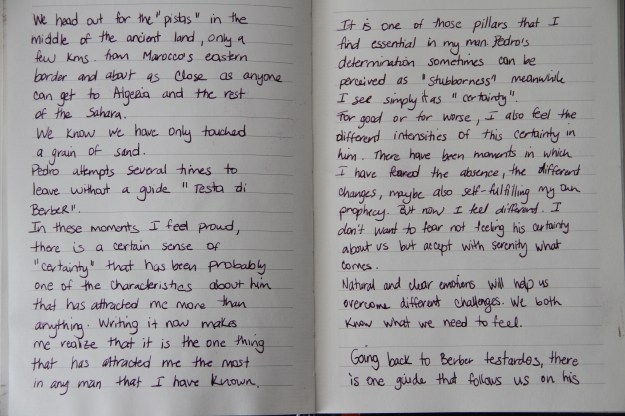 We head out for the "pistas" in the
middle of the ancient land, only a
few kms. from Marocco's eastern
border and about as close as anyone
can get to Algeria and the rest
of the Sahara.
We know we have only touched
a grain of sand.
Pedro attempts several times to
leave without a guide "Testa di
Berber".
In these moments I feel proud,
there is a certain sense of
"certainty" that has been probably
one of the characteristics about him
that has attracted me more than
anything. Writing it now makes
me realize that it is the one thing
that has attracted me the most
in any man that I have known.
It is one of those pillars that I
find essential in my man. Pedro's
determination sometimes can be
perceived as "stubborness" meanwhile
I see simply it as "certainty".
For good or for worse, I also feel the
different intensities of this certainty in
him. There have been moments in which
I have feared the absence, the different
changes, maybe also self-fulfilling my own
prophecy. But now I feel different. I
don't want to fear not feeling his certainty
about us but accept with serenity what
comes.
Natural and clear emotions will help us
overcome different challenges. We both
know what we need to feel.
Going back to Berber testardos, there
is one guide that follows us on his